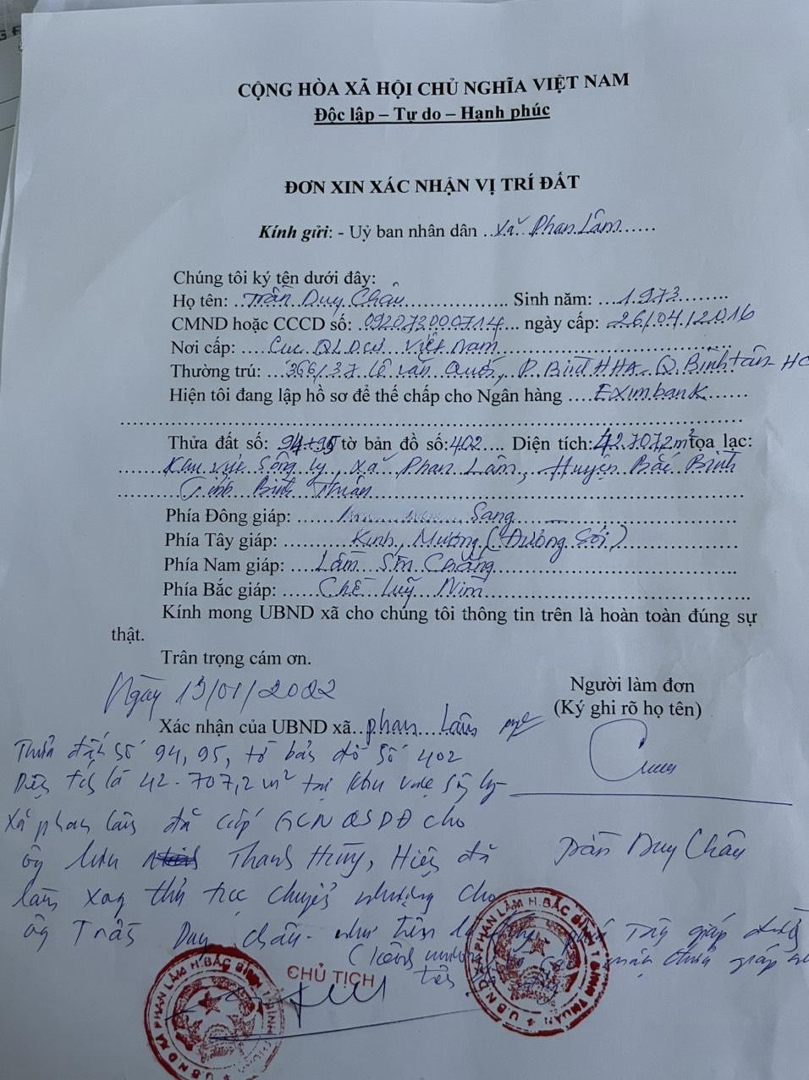 CỘNG HÒA XÃ HỘI CHỦ NGHĨA VIỆT NAM
Độc lập – Tự do – Hạnh phúc
ĐƠN XIN XÁC NHẬN VỊ TRÍ ĐẤT
Kính gửi: - Uỷ ban nhân dân ..Xã Phan Lâm......
Chúng tôi ký tên dưới đây:
Họ tên: ..Trần Duy Châu.................. Sinh năm: ...1973........
CMND hoặc CCCD số: .092073000714... ngày cấp: 26/04/2016
Nơi cấp: ....Cục QLDCư Việt Nam..........
Thường trú: ...366/37 Lê Văn Quới, P. Bình HHA, Q. Bình Tân - HC
Hiện tôi đang lập hồ sơ để thế chấp cho Ngân hàng ....Eximbank......
Thửa đất số: 94+95 tờ bản đồ số:402.... Diện tích:42.707,2m² tọa lạc:
Khu vực Sông Lý, Xã Phan Lâm, Huyện Bắc Bình
Tỉnh Bình Thuận
Phía Đông giáp: ........ Sang
Phía Tây giáp: ..........Kinh, Mương (Đường Sỏi)
Phía Nam giáp: ....Lâm Sín Chắng
Phía Bắc giáp: ....Chế Luỹ Nim
Kính mong UBND xã cho chúng tôi thông tin trên là hoàn toàn đúng sự
thật.
Trân trọng cám ơn.
Ngày 13/01/2022
Người làm đơn
(Ký ghi rõ họ tên)
Xác nhận của UBND xã..Phan Lâm
Thửa đất số 94, 95, tờ bản đồ số 402
Diện tích là 42.707,2 m² tại khu vực Sông Lý
Xã Phan Lâm đã cấp GCN QSDĐ cho
ông Lưu Thanh Hùng, Hiện đã
Trần Duy Châu
làm xong thủ tục chuyển nhượng cho
ông Trần Duy Châu. như trên phía Tây giáp đường
(kênh mương
CHỦ TỊCH
UBND XÃ PHAN LÂM H.BẮC BÌNH T.BÌNH THUẬN
UBND XÃ PHAN LÂM H.BẮC BÌNH T.BÌNH THUẬN